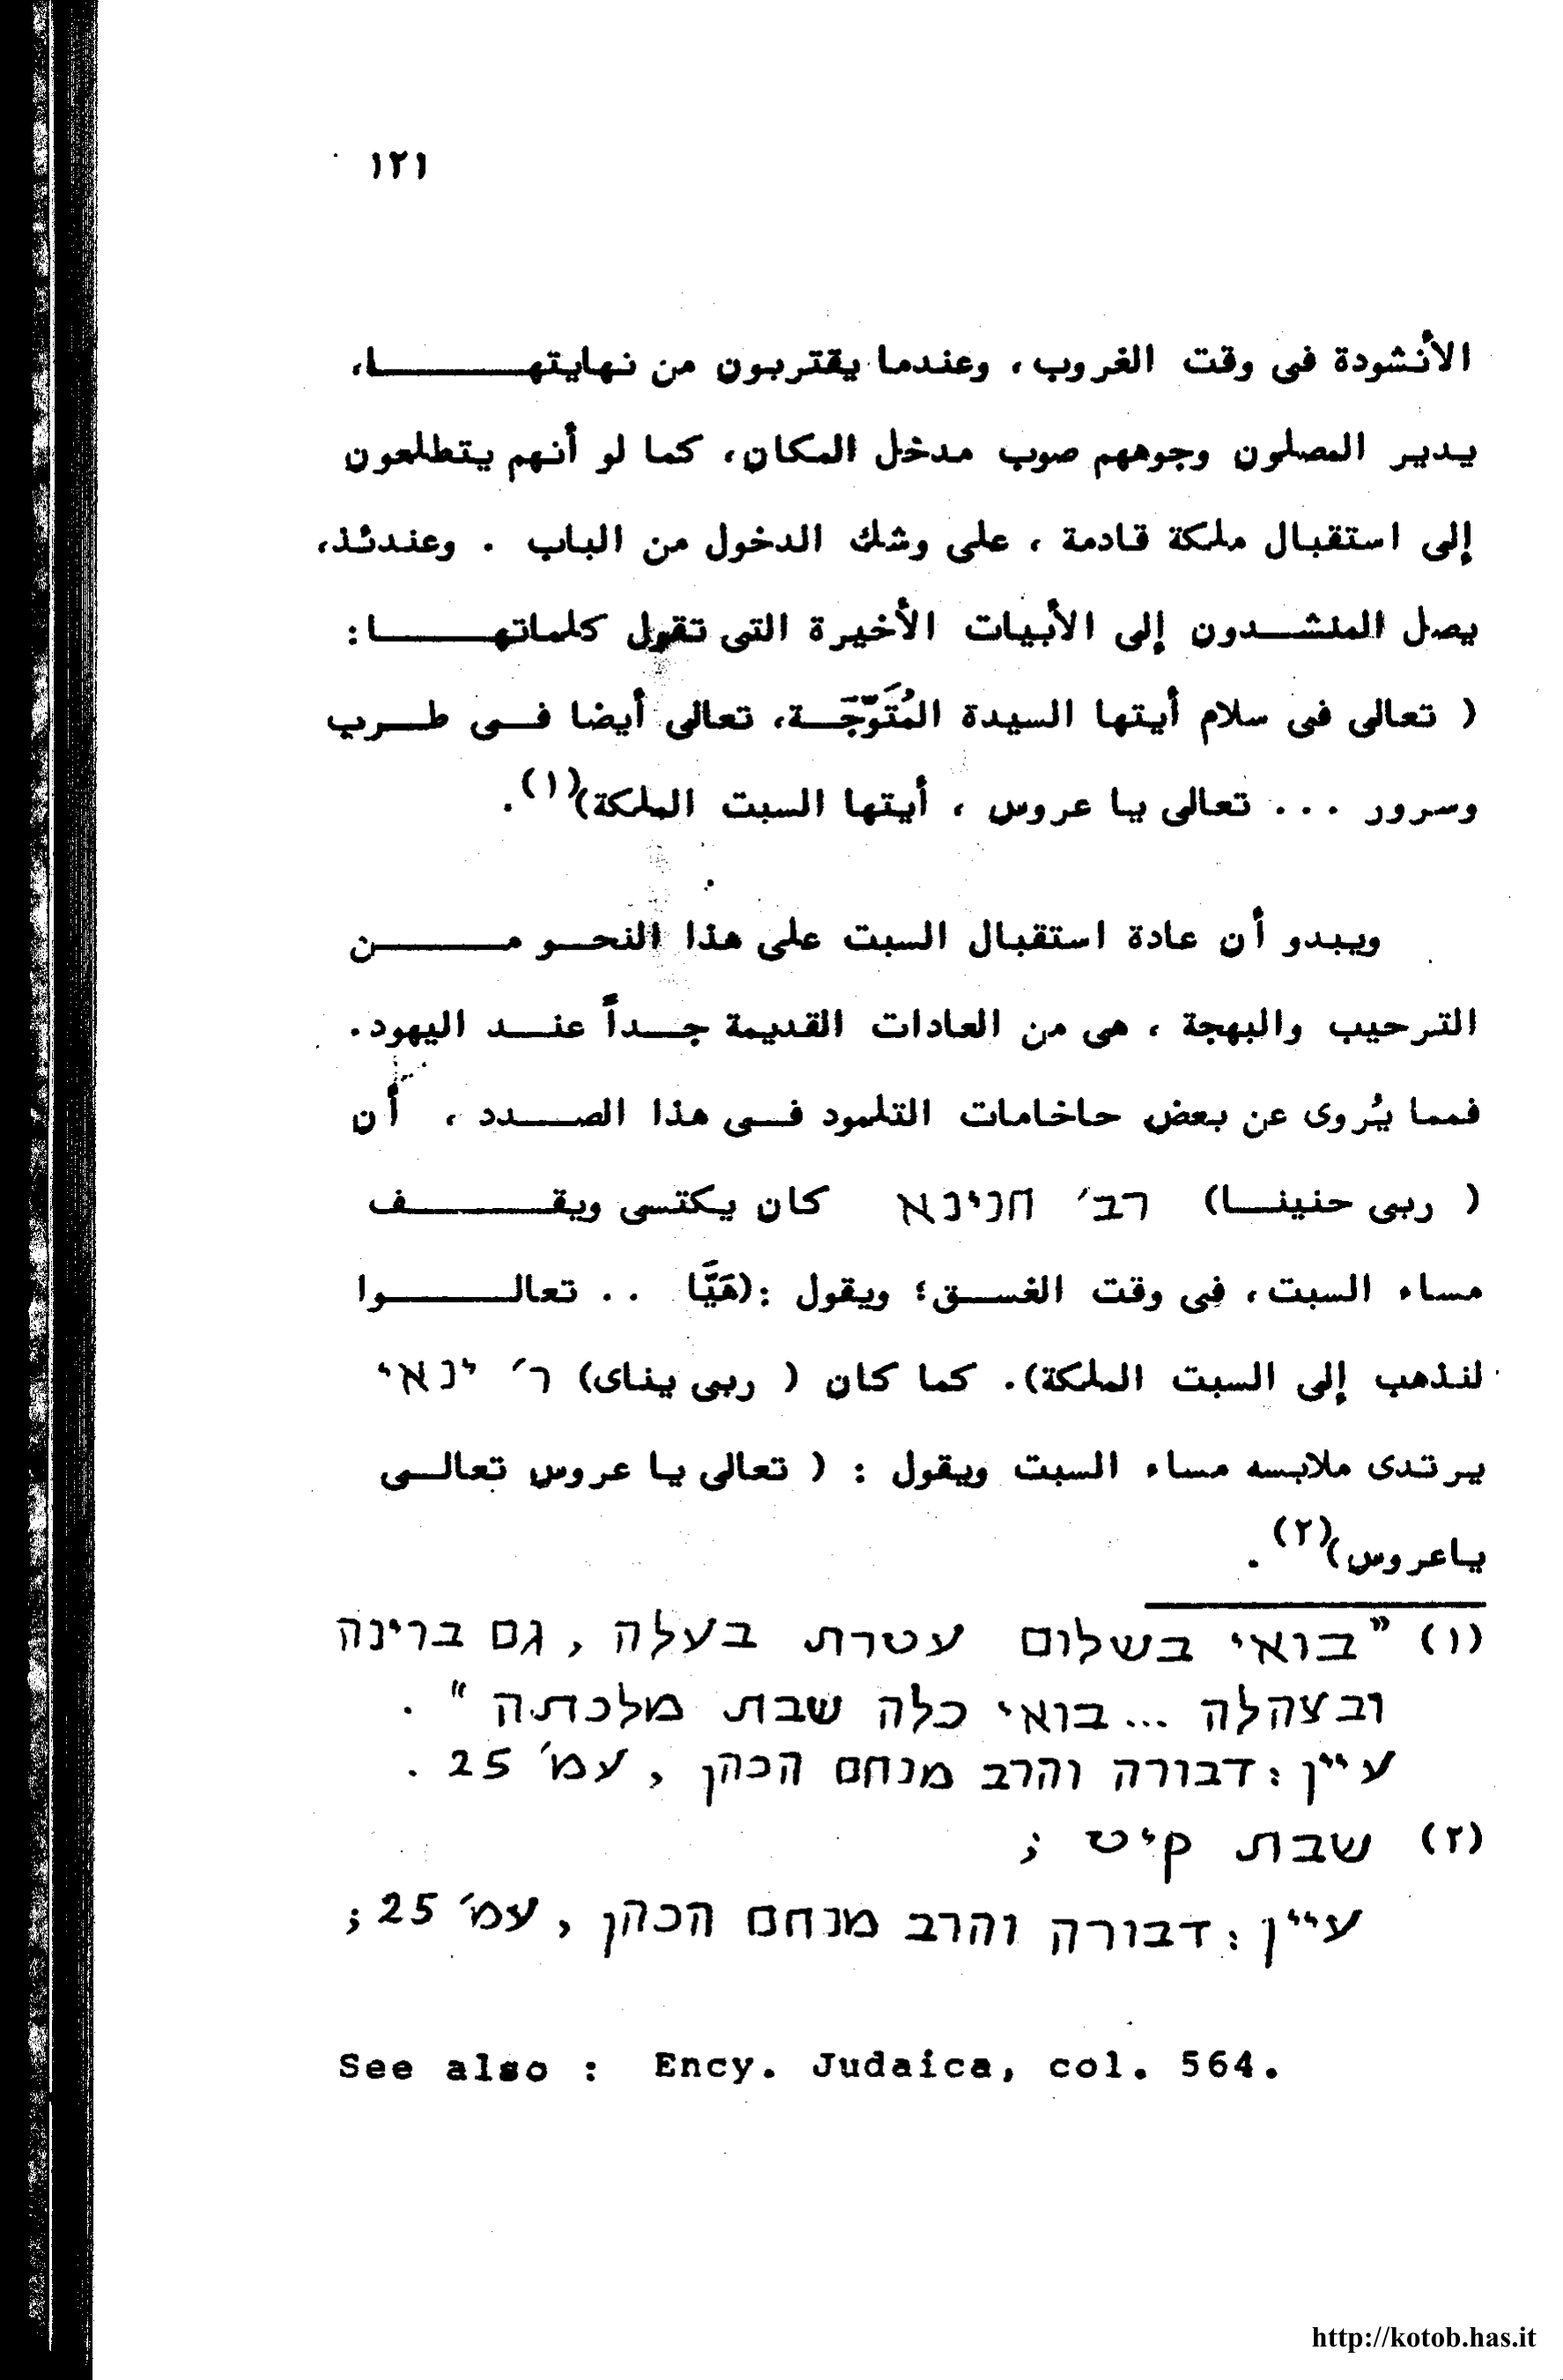 ١٢١
الأنشودة فى وقت الغروب ، وعندما يقتربون من نهايتهــــــا،
يدير المصلون وجوههم صوب مدخل المكان، كما لو أنهم يتطلعون
إلى استقبال ملكة قادمة ، على وشك الدخول من الباب . وعندئذ،
يصل المنشـــدون إلى الأبيات الأخيرة التى تقول كلماتهـــــا:
( تعالى فى سلام أيتها السيدة المُتَوَّجَــة، تعالى أيضا فــى طــرب
وسرور ... تعالى يا عروس ، أيتها السبت الملكة)(١).
ويبدو أن عادة استقبال السبت على هذا النحــو مــــــن
الترحيب والبهجة ، هى من العادات القديمة جــداً عنــد اليهود.
فمما يُروى عن بعض حاخامات التلمود فــى هذا الصــــدد ، أن
( ربى حنينــا) רב׳ חנינא كان يكتسى ويقــــــف
مساء السبت، فى وقت الغســق؛ ويقول :(هَيَّا .. تعالــــــوا
لنذهب إلى السبت الملكة). كما كان ( ربى يناى) ר׳ ינאי
يرتدى ملابسه مساء السبت ويقول : ( تعالى يا عروس تعالــى
ياعروس)(٢).
(١) ״בואי בשלום עטרת בעלה , גם ברינה
ובצהלה ... בואי כלה שבת מלכתה ״ .
עיין : דבורה והרב מנחם הכהן , עמ׳ 25 .
(٢) שבת קיט ;
עיין : דבורה והרב מנחם הכהן , עמ׳ 25 ;
See also : Ency. Judaica, col. 564.
http://kotob.has.it